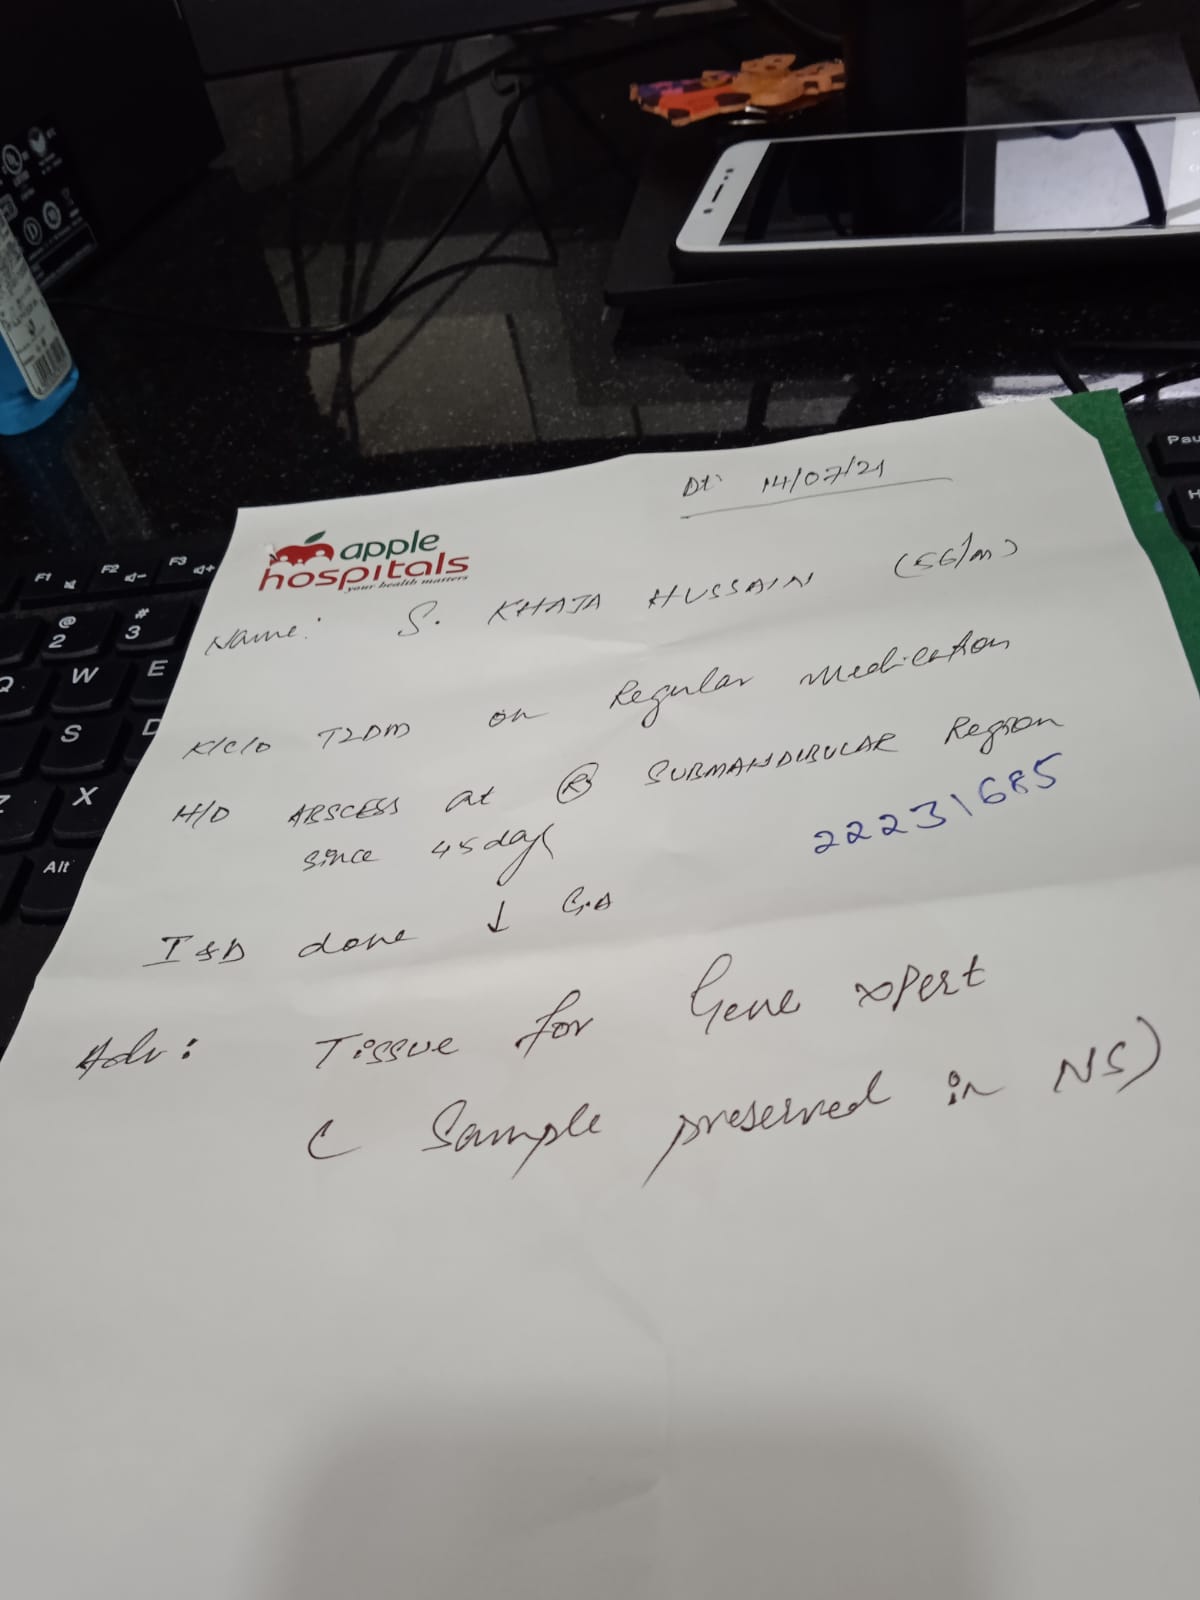 Dt: 14/07/21
apple
hospitals
your health matters
Name: S. KHAJA HUSSAIN (56/m)
K/C/O T2DM on Regular medication
H/O ABSCESS at (R) SUBMANDIBULAR Region
since 45 days
22231685
I & D done ↓ G.A
Adv: Tissue for Gene xpert
( Sample preserved in NS)
F1
F2
F3
@
2
#
3
W
E
S
D
X
Alt
Pau